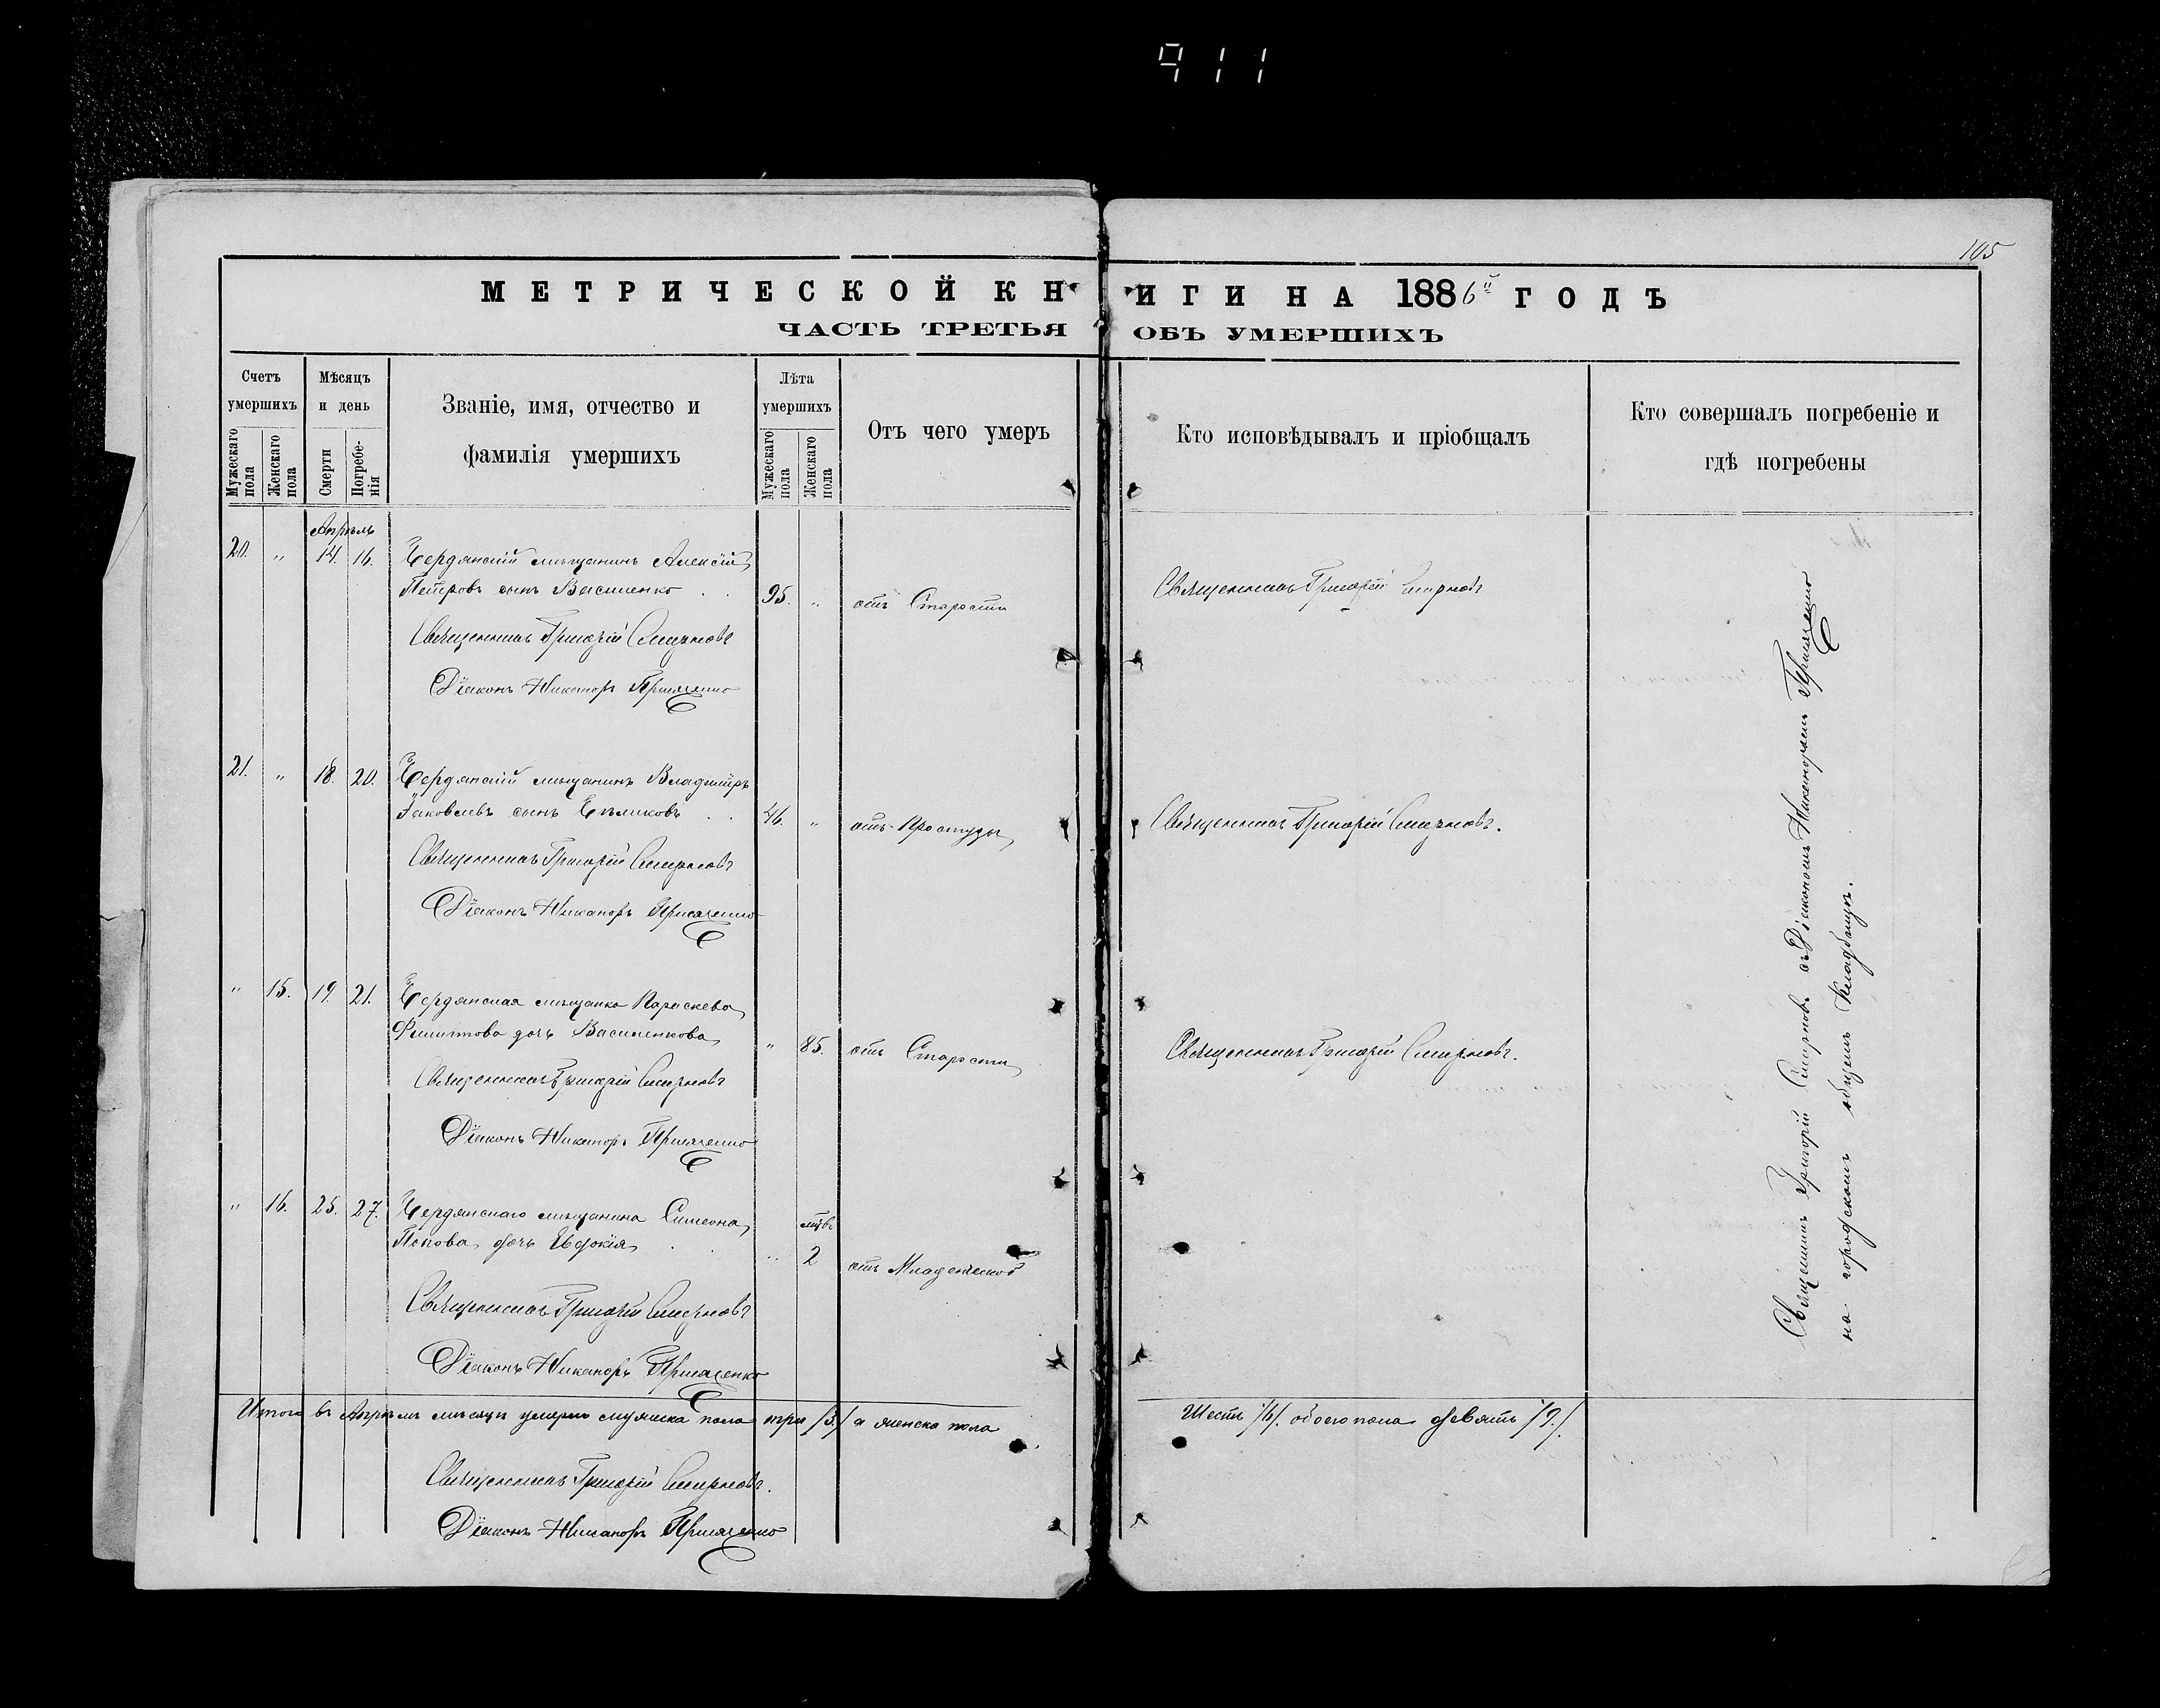 911
105
МЕТРИЧЕСКОЙ КНИГИ НА 1886й ГОДЪ
ЧАСТЬ ТРЕТЬЯ ОБЪ УМЕРШИХЪ
Счетъ умершихъ
Мужескаго пола
Женскаго пола
Мѣсяцъ и день
Смерти
Погребенія
Званіе, имя, отчество и фамилія умершихъ
Лѣта умершихъ
Мужескаго пола
Женскаго пола
Отъ чего умеръ
Кто исповѣдывалъ и пріобщалъ
Кто совершалъ погребеніе и гдѣ погребены
Апрѣль
20. " 14. 16. Бердянскій мѣщанинъ Алексій
Петровъ сынъ Василенко . . 95. " отъ Старости Священникъ Григорій Смирновъ
Священникъ Григорій Смирновъ
Діаконъ Никаноръ
21. " 18. 20. Бердянскій мѣщанинъ Владиміръ
Іаковлевъ сынъ . . 46. " отъ Простуды Священникъ Григорій Смирновъ.
Священникъ Григорій Смирновъ
Діаконъ Никаноръ
" 15. 19. 21. Бердянская мѣщанка Параскева
Филиппова дочь Василенкова " 85. отъ Старости Священникъ Григорій Смирновъ.
Священникъ Григорій Смирновъ
Діаконъ Никаноръ
" 16. 25. 27. Бердянскаго мѣщанина Симеона мцв.
Попова дочь Евдокія . . " 2 отъ Младенческой
Священникъ Григорій Смирновъ
Діаконъ Никаноръ
Священникъ Григорій Смирновъ съ Діакономъ Никаноромъ
на городскомъ общемъ Кладбищѣ.
Итого въ Апрѣлѣ мѣсяцѣ умерло мужеска пола три /3./ а женска пола Шесть /6/. обоего пола девять /9./.
Священникъ Григорій Смирновъ.
Діаконъ Никаноръ